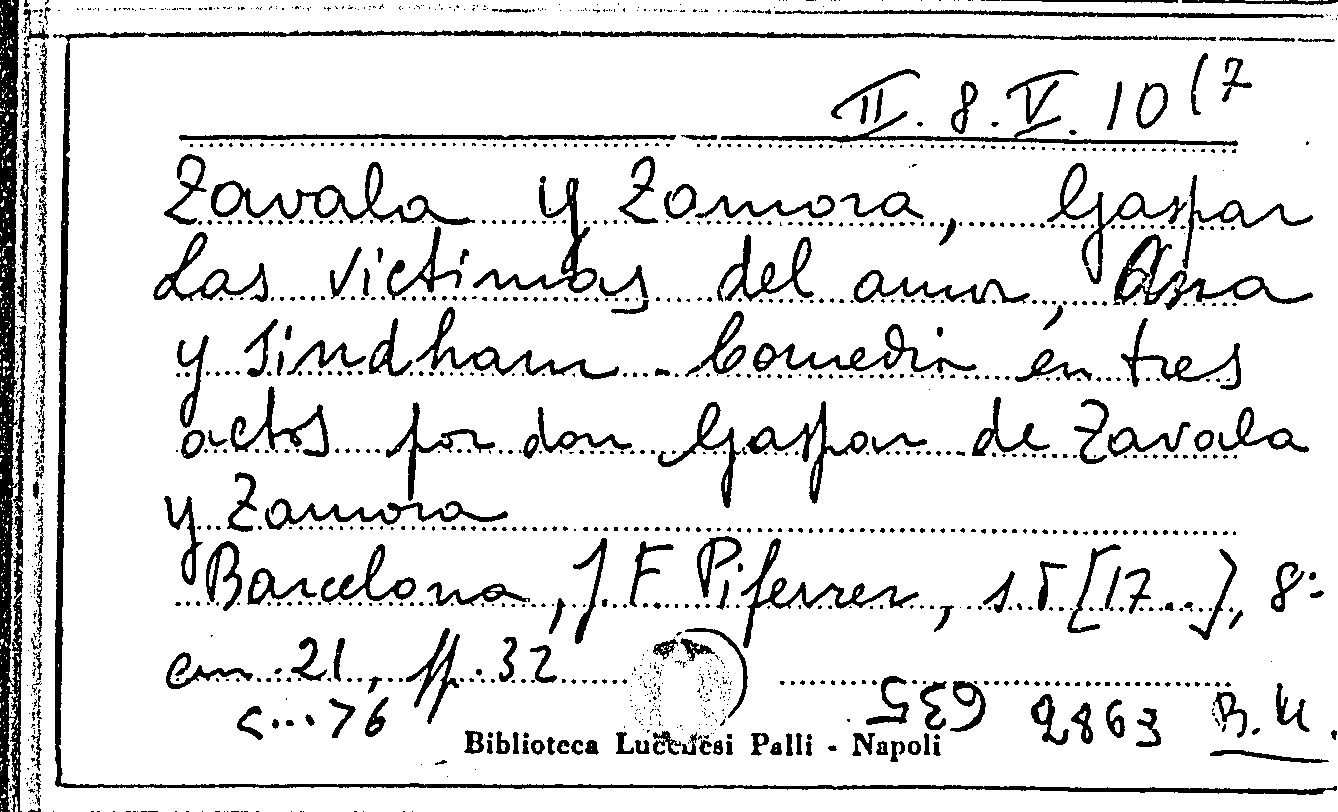 II. 8. V. 10 (7
Zavala y Zamora, Gaspar
Las victimas del amor, Ana
y Sindham. Comedia en tres
actos por don Gaspar de Zavala
y Zamora
Barcelona, J. F. Piferrer, s.d. [17..], 8º
cm. 21, pp. 32
C...76 635 2863 B.U.
Biblioteca Lucchesi Palli - Napoli